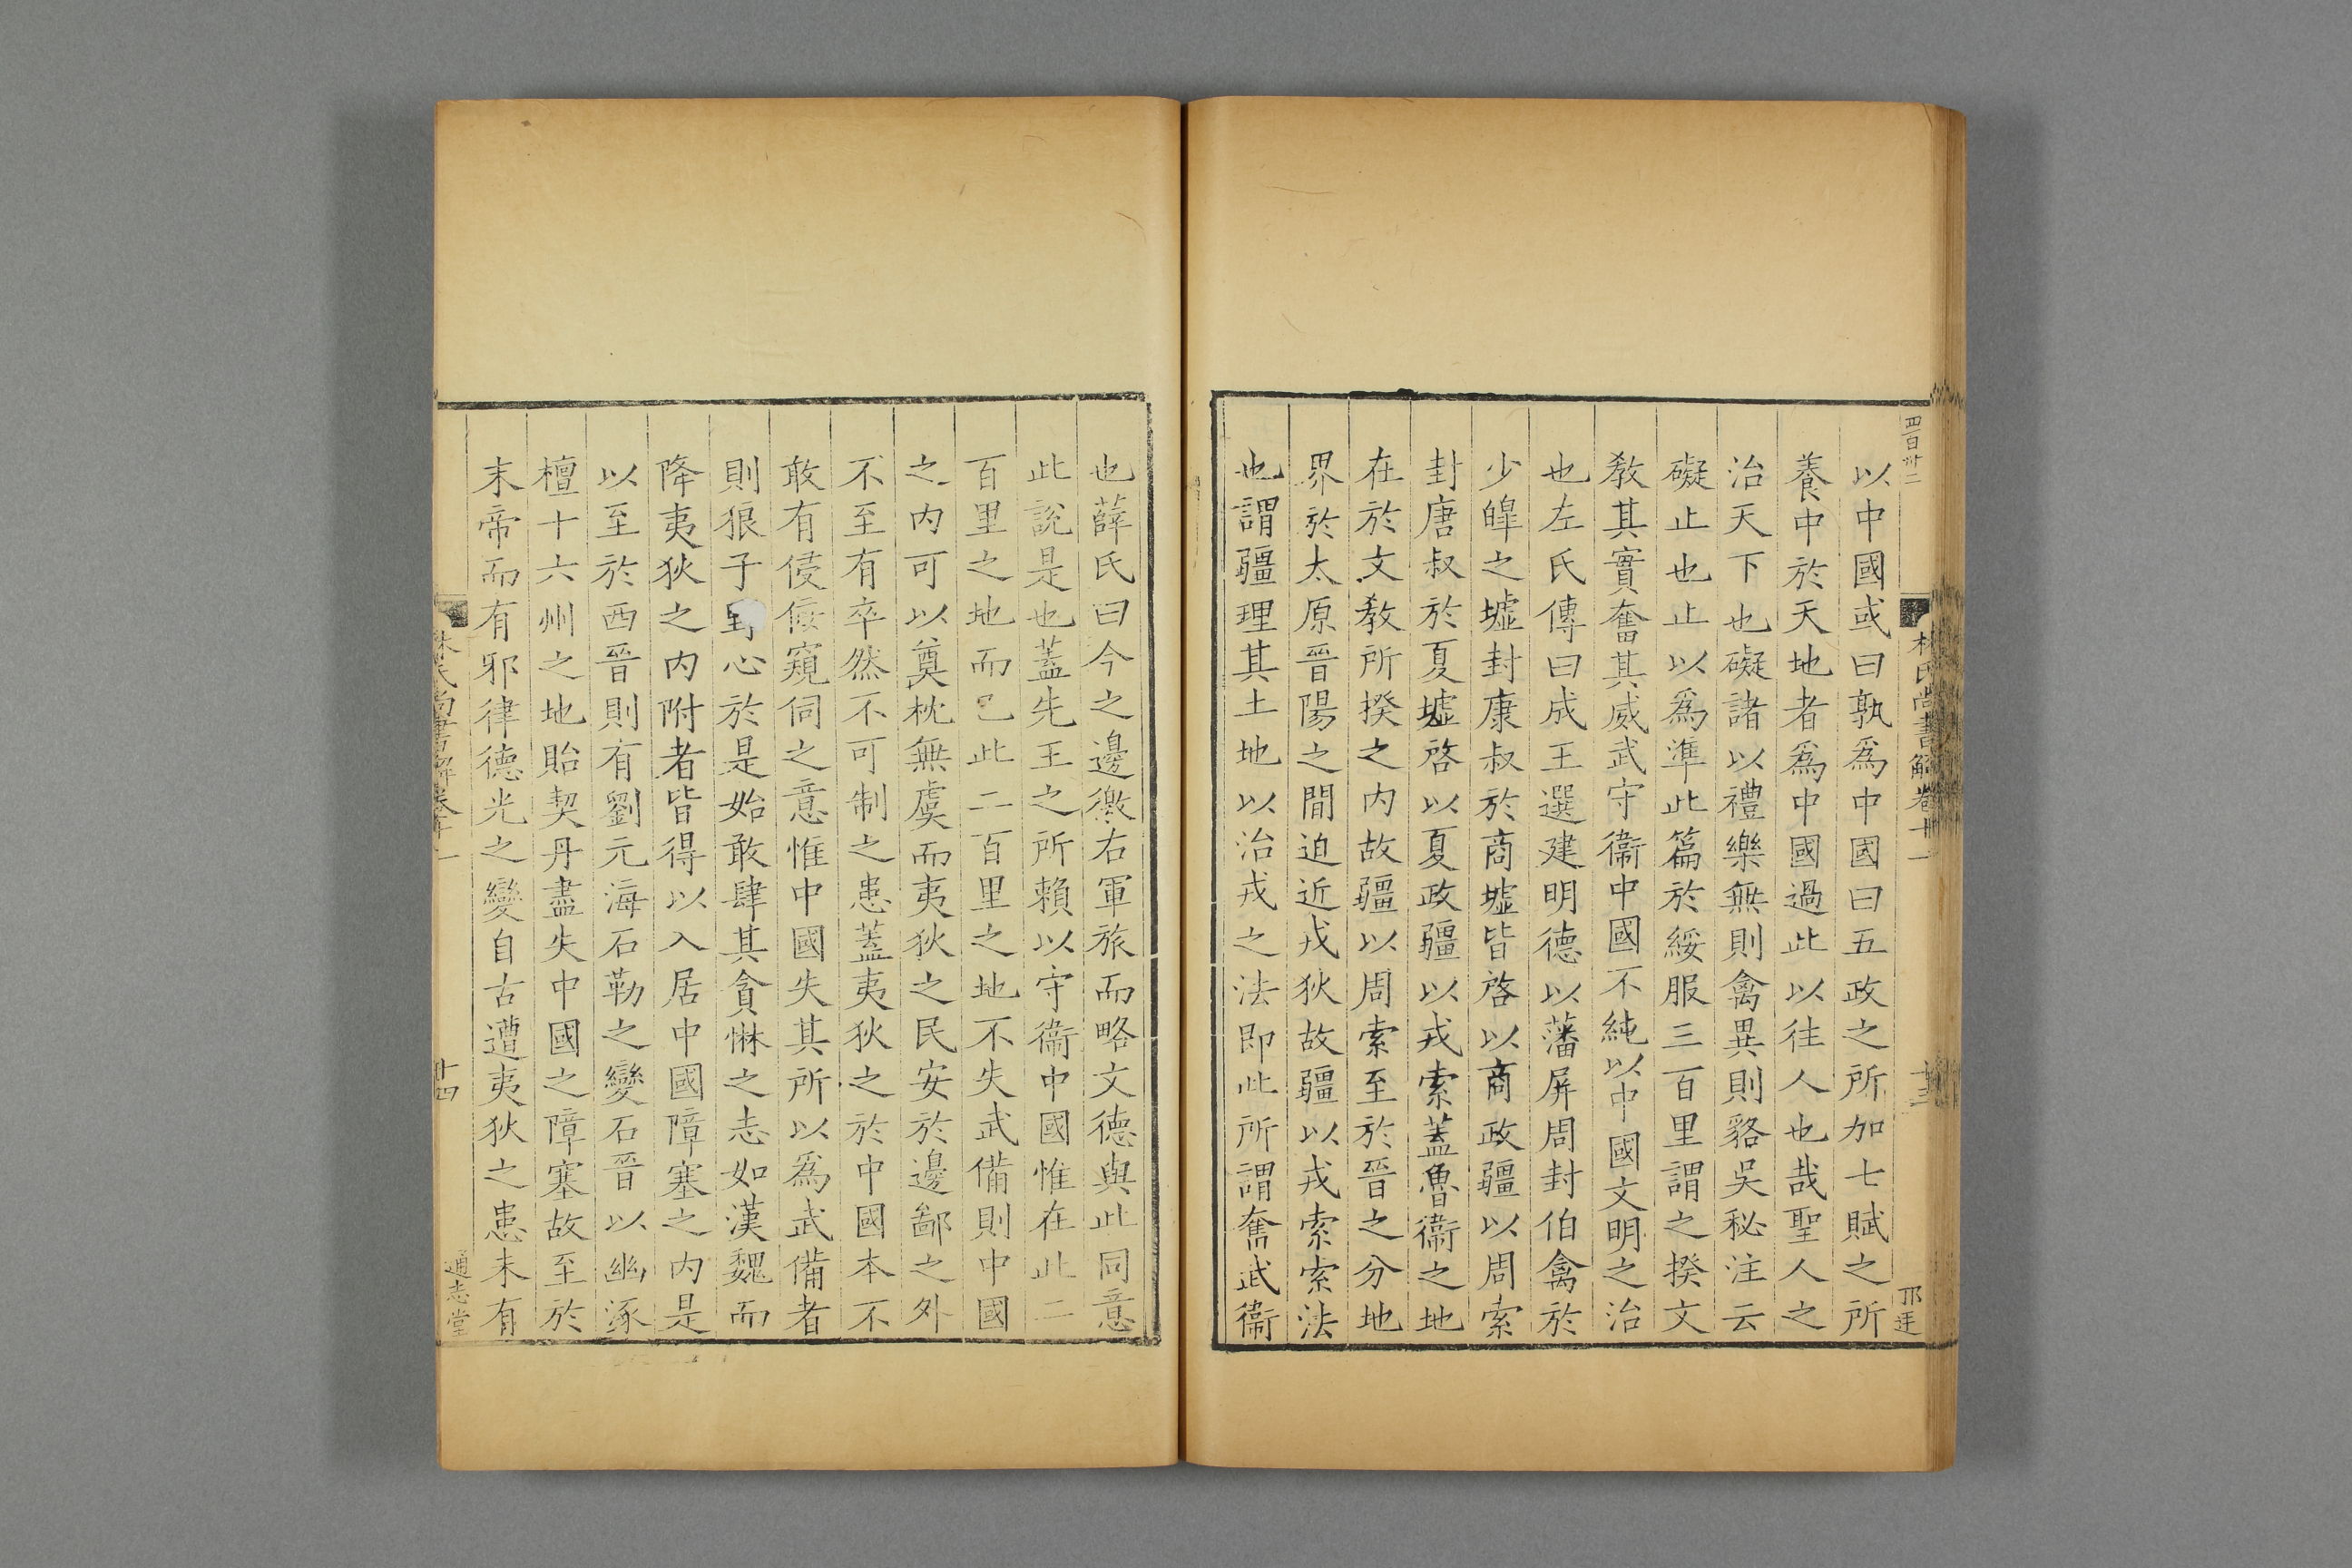 四百卅二
林氏尚書解卷十一
十三
以中國或曰孰爲中國曰五政之所加七賦之所
養中於天地者爲中國過此以往人也哉聖人之
治天下也礙諸以禮樂無則禽異則貉吳秘注云
礙止也止以爲準此篇於綏服三百里謂之揆文
敎其實奮其威武守衞中國不純以中國文明之治
也左氏傳曰成王選建明德以藩屏周封伯禽於
少皥之墟封康叔於商墟皆啓以商政疆以周索
封唐叔於夏墟啓以夏政疆以戎索蓋魯衞之地
在於文敎所揆之内故疆以周索至於晉之分地
界於太原晉陽之間迫近戎狄故疆以戎索索法
也謂疆理其土地以治戎之法即此所謂奮武衞
也薛氏曰今之邊徼右軍旅而略文德與此同意
此說是也蓋先王之所賴以守衞中國惟在此二
百里之地而已此二百里之地不失武備則中國
之内可以奠枕無虞而夷狄之民安於邊鄙之外
不至有卒然不可制之患蓋夷狄之於中國本不
敢有侵偪窺伺之意惟中國失其所以爲武備者
則狼子野心於是始敢肆其貪惏之志如漢魏而
降夷狄之内附者皆得以入居中國障塞之内是
以至於西晉則有劉元海石勒之變石晉以幽涿
檀十六州之地貽契丹盡失中國之障塞故至於
末帝而有邪律德光之變自古遭夷狄之患未有
林氏尚書解卷十一
十四
通志堂